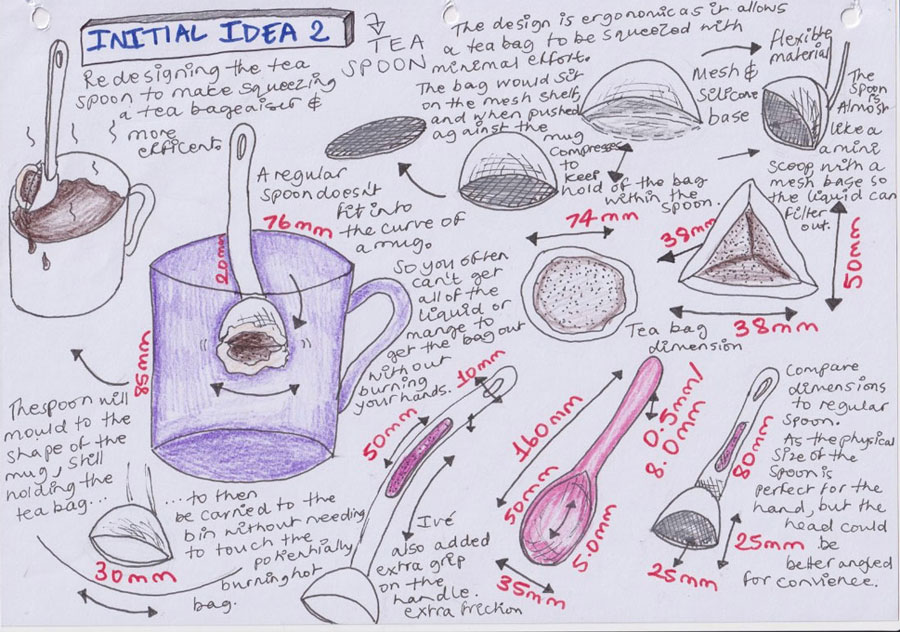 INITIAL IDEA 2
TEA
SPOON
Redesigning the tea
spoon to make squeezing
a tea bag eaiser &
more
efficent.
The design is ergonomic as it allows
a tea bag to be squeezed with
minimal effort.
The bag would sit
on the mesh shelf,
and when pushed
against the
mug
compresses
to
keep
hold of the bag
within the
spoon.
Mesh &
silicone
base
flexible
material
The
spoon
is
Almost
like a
a mini
scoop with a
mesh base so
the liquid can
filter
out.
A regular
spoon doesn't
fit into
the curve of
a mug.
So you often
can't get
all of the
liquid or
mange to
get the bag out
without
burning
your hands.
76mm
20mm
85mm
74mm
38mm
50mm
38mm
Tea bag
dimension
The spoon will
mould to the
shape of the
mug, still
holding the
tea bag...
...to then
be carried to the
bin without needing
to touch the
potenhially
burning hot
bag.
30mm
50mm
10mm
Ivé
also added
extra grip
on the
handle.
extra friction
160mm
0.5mm/
8.0mm
50mm
5.0mm
35mm
80mm
25mm
25mm
Compare
dimensions
to regular
spoon.
As the physical
size of the
spoon is
perfect for the
hand, but the
head could
be
better angled
for convience.